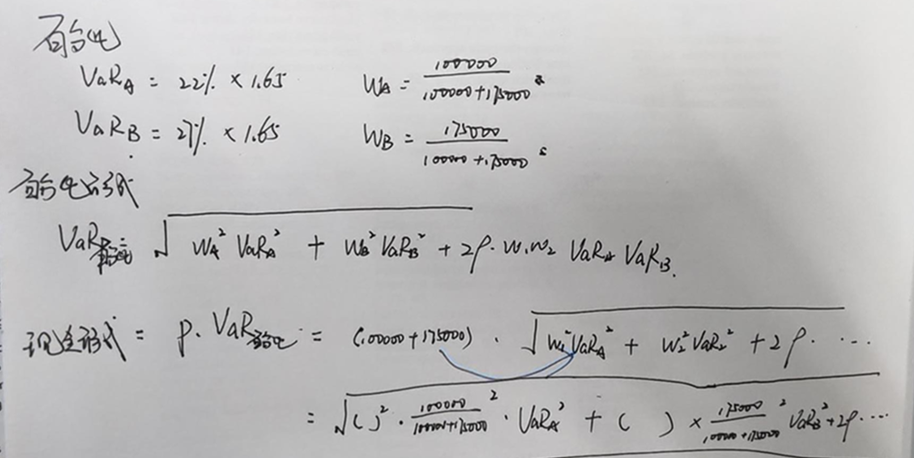 百分比
VaR_A = 22% × 1.65 W_A = 100000 / (100000+175000)
VaR_B = 27% × 1.65 W_B = 175000 / (100000+175000)
百分比形式
VaR_百分比 √(W_A² VaR_A² + W_B² VaR_B² + 2ρ·W₁W₂ VaR_A VaR_B.)
现金形式 = P·VaR_百分比 = (100000+175000) · √(W₁² VaR_A² + W₂² VaR₂² + 2ρ·…)
= √(( )² · (100000 / (100000+175000))² · VaR_A² + ( ) × (175000 / (100000+175000))² VaR_B² + 2ρ…)